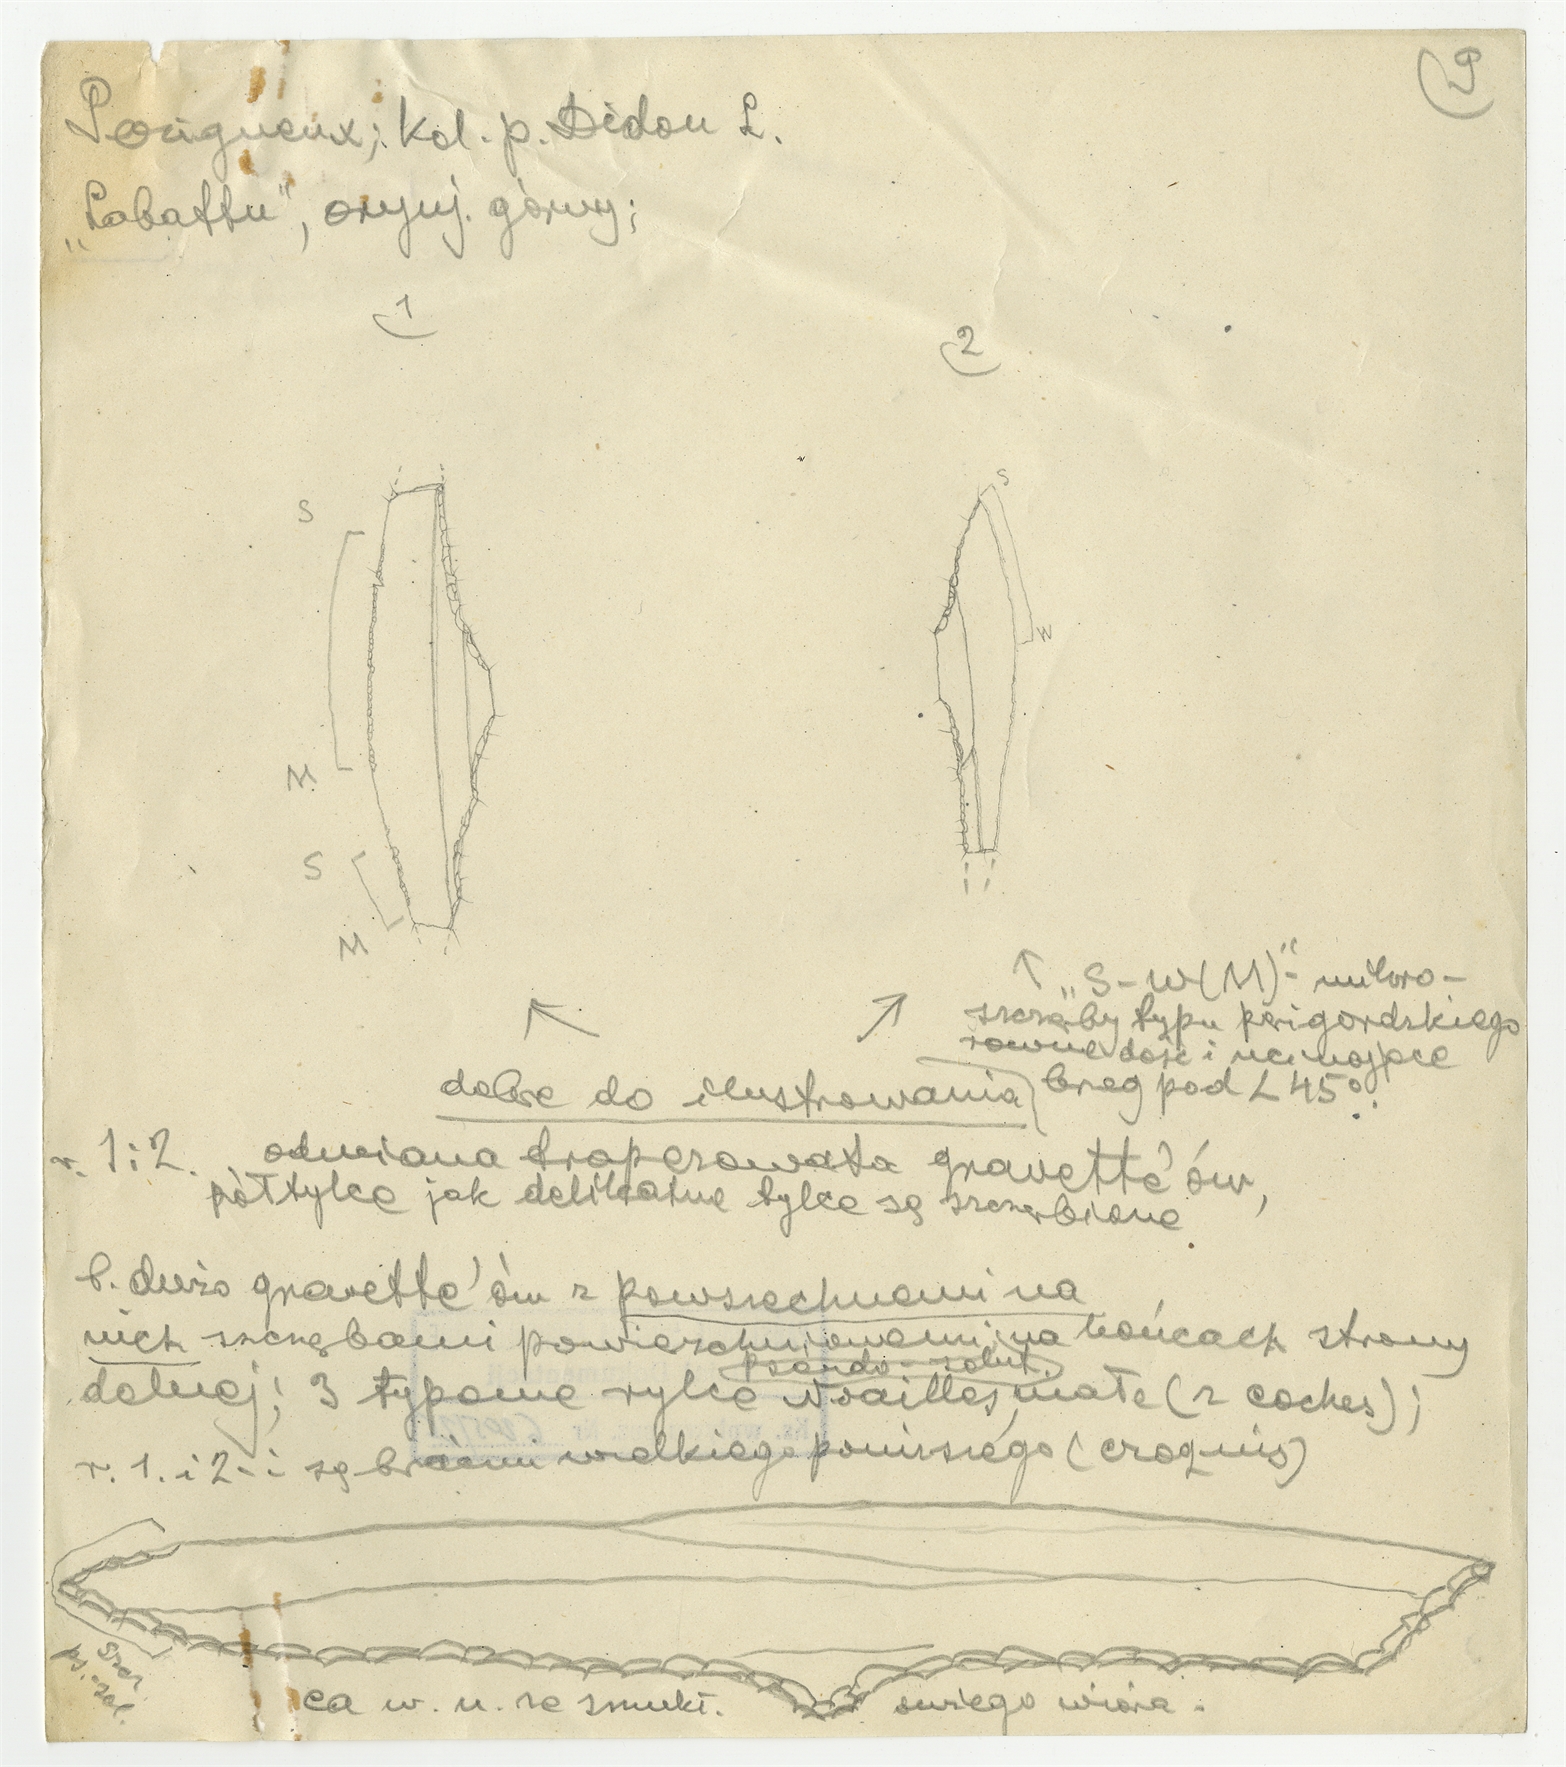 9
Perigueux; kol. p. Didon L.
„Labattu”, oryni. górny;
1
2
S
M
S
M
S
W
„S-W(M)” - mikro-
szczęby typu perigordskiego
równe dość i ucinające
brzeg pod ∠ 45°.
dobre do ilustrowania
r. 1 i 2. odmiana trapezowata gravette'ów,
półtylce jak delikatne tylce są szczerbione
b. dużo gravette'ów z powszechnemi na
nich szczębami powierzchniowemi na końcach strony
pseudo-solut.
dolnej; 3 typowe rylce Noailles, małe (z coches);
r. 1. i 2-i są braćmi wielkiego poniższego (croquis)
szcz.
ps.-sol.
ca w. n. ze smukł. wióra.